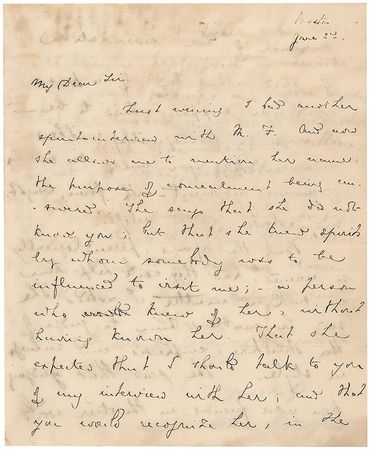 Boston
June 2nd.
My Dear Sir
Last evening I had another
spirit-interview with M. F. And now
she allows me to mention her name:
the purpose of concealment being an-
swered. She says that she did not
know you; but that she knew spirits
by whom somebody was to be
influenced to visit me; - a person
who knew of her, without
having known her. That she
expected that I should talk to you
of my interview with her; and that
you would recognize her, in the